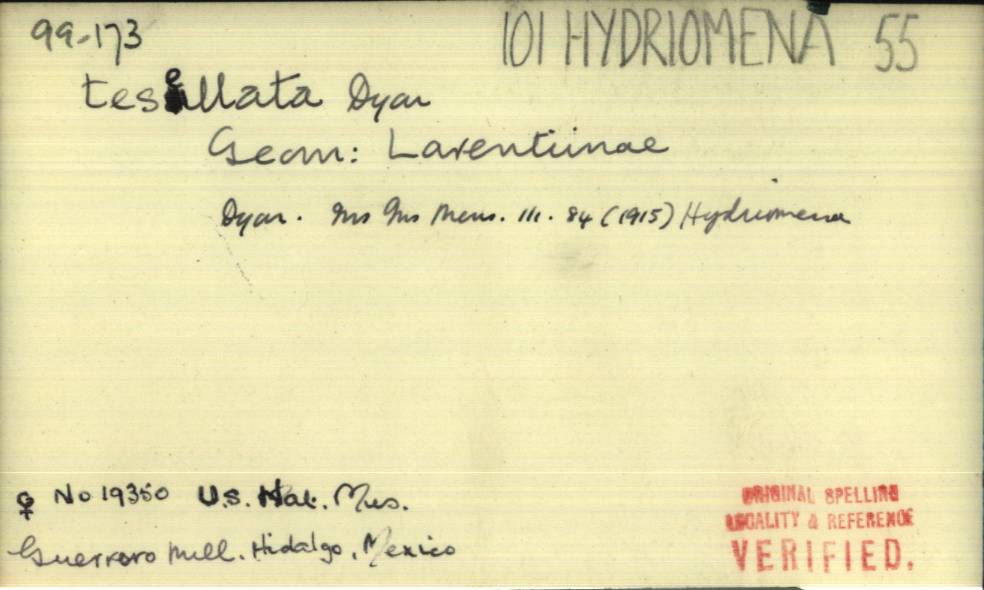 99-173 101 HYDRIOMENA 55
tesellata Dyar
Geom: Larentiinae
Dyar. Ins Ins Mens. III. 84 (1915) Hydriomena
♀ No 19350 U.S. Nat. Mus.
Guerrero Mill. Hidalgo, Mexico
ORIGINAL SPELLING
LOCALITY & REFERENCE
VERIFIED.